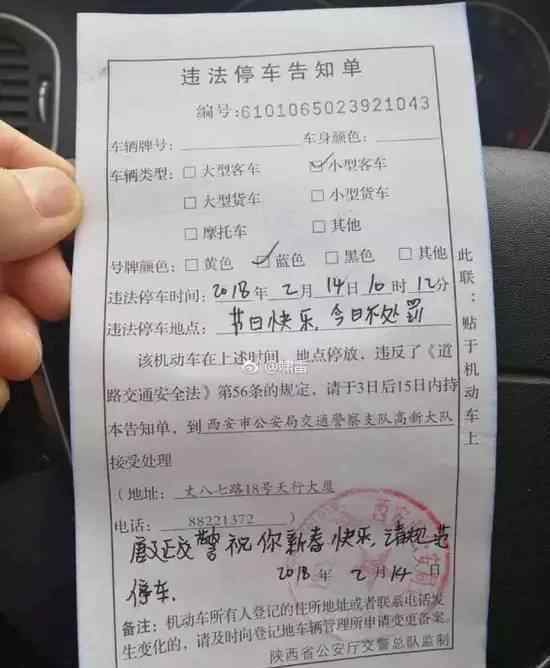 违法停车告知单
编号:6101065023921043
车辆牌号: 车身颜色:
车辆类型: □大型客车 ☑小型客车
□大型货车 □小型货车
□摩托车 □其他
号牌颜色: □黄色 ☑蓝色 □黑色 □其他
违法停车时间: 2018年2月14日10时12分
违法停车地点: 节日快乐,今日不处罚
该机动车在上述时间、地点停放,违反了《道
路交通安全法》第56条的规定,请于3日后15日内持
本告知单,到西安市公安局交通警察支队高新大队
接受处理
(地址: 丈八七路18号天行大厦
电话: 88221372 )
交警祝你新春快乐,请规范
停车.
2018年2月14日
备注:机动车所有人登记的住所地址或者联系电话发
生变化的,请及时向登记地车辆管理所申请变更备案。
陕西省公安厅交警总队监制
此联:贴于机动车上